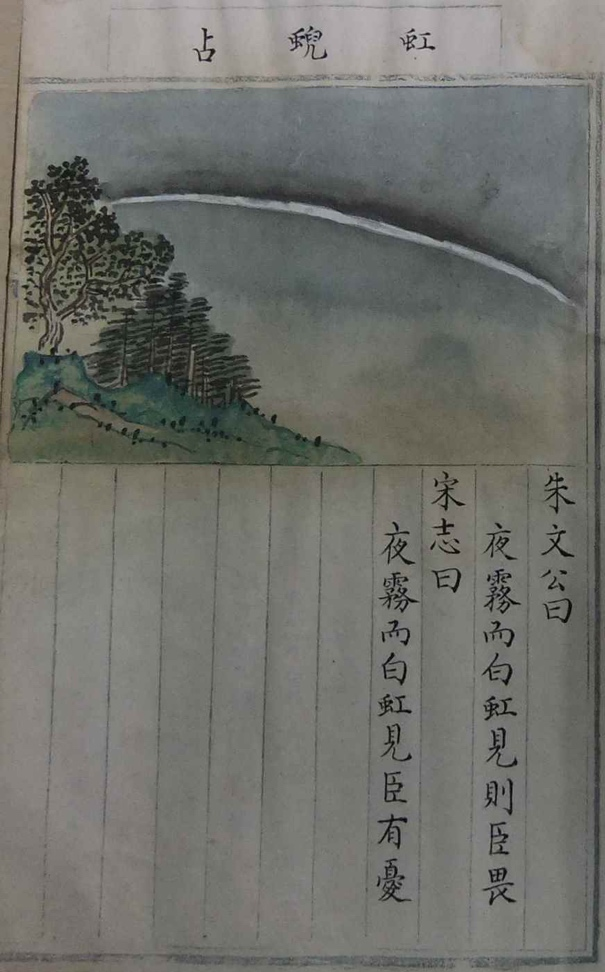 虹蜺占
朱文公曰
夜霧而白虹見則臣畏
宋志曰
夜霧而白虹見臣有憂